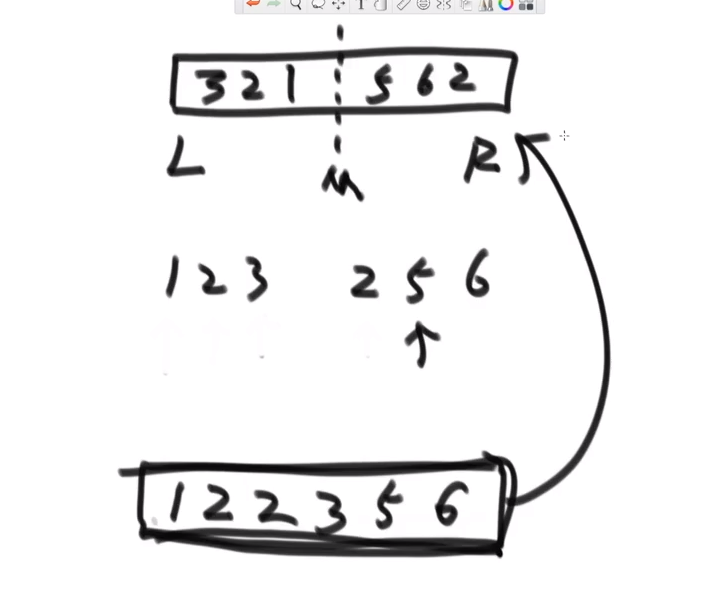 3 2 1 5 6 2
L M R
1 2 3 2 5 6
1 2 2 3 5 6